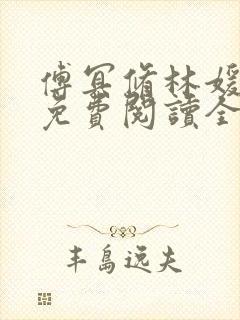 傅冥脩林媛
免費閱讀全
丰島远夫